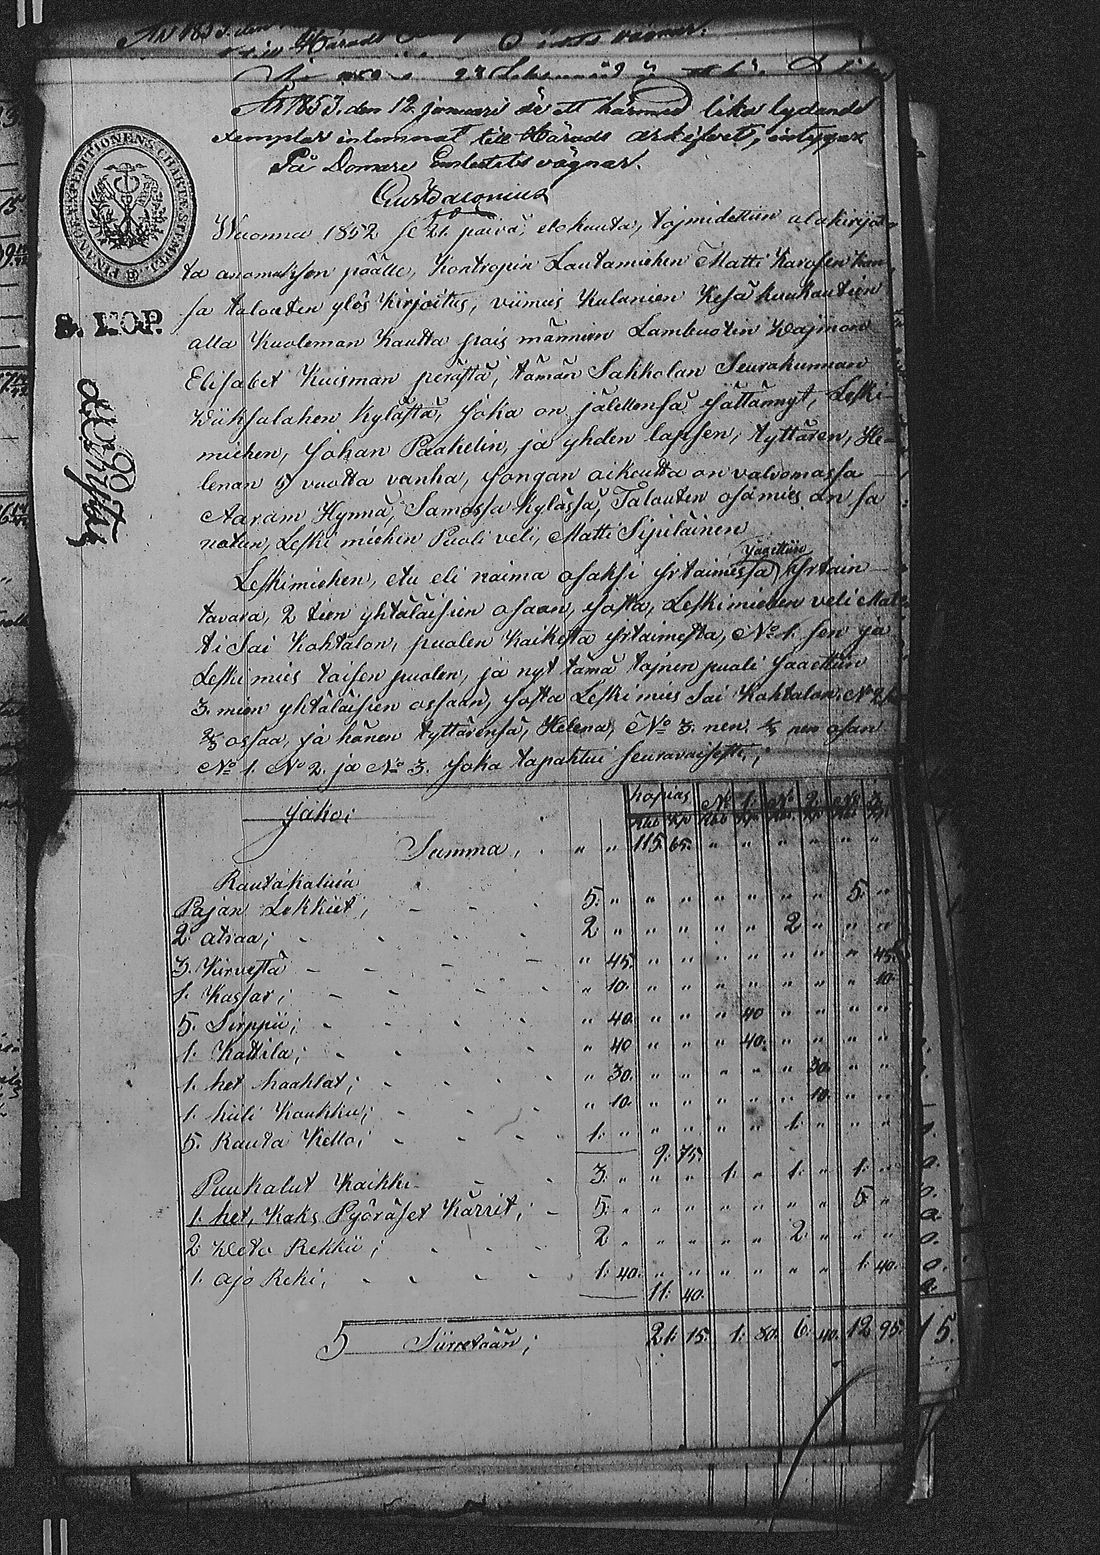 År 1853, den 12 januari är ett härmed lika lydande
exemplar inlemnat till Härads arkifvet, intygar
På Domare Embetets vägnar.
FINANCE-EXPEDITIONENS CHARTÆ-STEMPEL
8. KOP.
Wuonna 1852 se 21. päivä, elokuuta, tojmidettiin alakirjote-
ta anomuxen päälle, Kontropin Lautamiehen Matti Karosen kan-
sa taloudten ylös kirjoitus, viimeis kulunien Kesä kuukautien
alla Kuoleman kautta pois männien Lambuotin Wajmon
Elisabet Kuisman perästä, tämän Sakkolan Seurakunnan
Wiiksalahen Kylästä, Joka on jälellensä jättännyt, Leski-
miehen, Johan Paakelin, ja yhden lapsen, tyttären, He-
lenan vuotta vanha, Jongan oikeutta on valvomassa
Aaram Hynnä, Samassa Kylässä, Talouten osamies on sa
notun, Leski miehen Puoli veli, Matti Sipiläinen
Jaettiin
Leskimiehen, etu eli naima osaksi Irtaimessa Irtain
tavara, 2 tien yhtäläisien osaan, Josta, Leskimiehen veli Mat-
ti Sai Kohtalon, puolen Kaikesta irtaimesta, No 1. sen ja
Leski mies toisen puolen, ja nyt tämä tojnen puoli Jaettiin
3. mien yhtäläisien ossaan, Josta Leskimies Sai Kohtalon No 2.
⅔ ossaa, ja hänen tyttärensä, Helena, No 3. nen ⅓ nen osan
No 1. No 2. ja No 3. Joka tapahtui seuravaisesti;
Jako; Kopias No 1. No 2. No 3.
Rub Kp Rub Kp Rub Kp Rub Kp
Summa, " " 115. 65. " " " " " "
Rautakaluia
Pajan Lekkiet, 5. " " " " " " " 5. "
2. atraa; 2 " " " " " 2 " " "
3. Kirvestä " 45. " " " " " " " 45.
1. Kassar; " 10. " " " " " " " 10.
5. Sirppii; " 40. " " " 40 " " " "
1. Kattila; " 40 " " " 40. " " " "
1. het haahlat; " 30. " " " " " 30. " "
1. hiili Kaukku; " 10. " " " " " 10. " "
5. Rauta Kello; 1. " " " " " 1. " " "
9. 75.
Puukalut Kaikki 3. " " " 1. " 1. " 1. "
1. het, Kaks Pyöräset Kärrit; 5. " " " " " " " 5. "
2 Weto Rekkii; 2 " " " " " 2. " " "
1. Ajo Reki, 1. 40. " " " " " " 1. 40.
11. 40.
5 Siirretään; 21. 15. 1. 80. 6. 40. 12. 95.